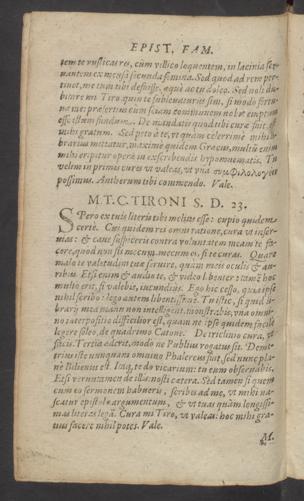 EPIST. FAM.
tem te rusticas res, cùm villico loquentem, in lacinia ser-
uantem ex mensa secunda semina. Sed quod ad rem per-
tinet, me tum tibi defuisse, æquè ac tu doleo. Sed noli du-
bitare mi Tiro, quin te subleuaturus sim, si modò fortu-
na me: præsertim cùm sciam communem nobis emptum
esse istum fundum. De mandatis quod tibi curæ fuit, est
mihi gratum. Sed peto à te, vt quàm celerrimè mihi li-
brarius mittatur, maximè quidem Græcus, multum enim
mihi eripitur operæ in exscribendis hypomnematis. Tu
velim in primis cures vt valeas, vt vna συμφιλολογεῖν
possimus. Antherum tibi commendo. Vale.
M. T. C. TIRONI S. D. 23.
SPero ex tuis literis tibi melius esse: cupio quidem
certè. Cui quidem rei omni ratione, cura vt inser-
uias: & caue suspiceris contra voluntatem meam te fa-
cere, quod non sis mecum. mecum es, si te curas. Quare
malo te valetudini tuæ seruire, quàm meis oculis & au-
ribus. Etsi enim & audio te, & video libenter: tamē hoc
multo erit, si valebis, iucundius. Ego hîc cesso, quia ipse
nihil scribo: lego autem libentissimè. Tu istic, si quid li-
brarij mea manu non intelligent, monstrabis, vna omni-
no interpositio difficilior est, quam ne ipse quidem facilè
legere soleo, de quadrimo Catone. De triclinio cura, vt
facis. Tertia aderit, modò ne Publius rogatus sit. Deme-
trius iste nunquam omnino Phalereus fuit, sed nunc pla-
nè Bilienus est. Itaq; te do vicarium: tu eum obseruabis.
Etsi veruntamen de illis. nosti cætera. Sed tamen si quem
cum eo sermonem habueris, scribes ad me, vt mihi na-
scatur epistolæ argumentum, & vt tuas quàm longissi-
mas literas legā. Cura mi Tiro, vt valeas: hoc mihi gra-
tius facere nihil potes. Vale.
M.